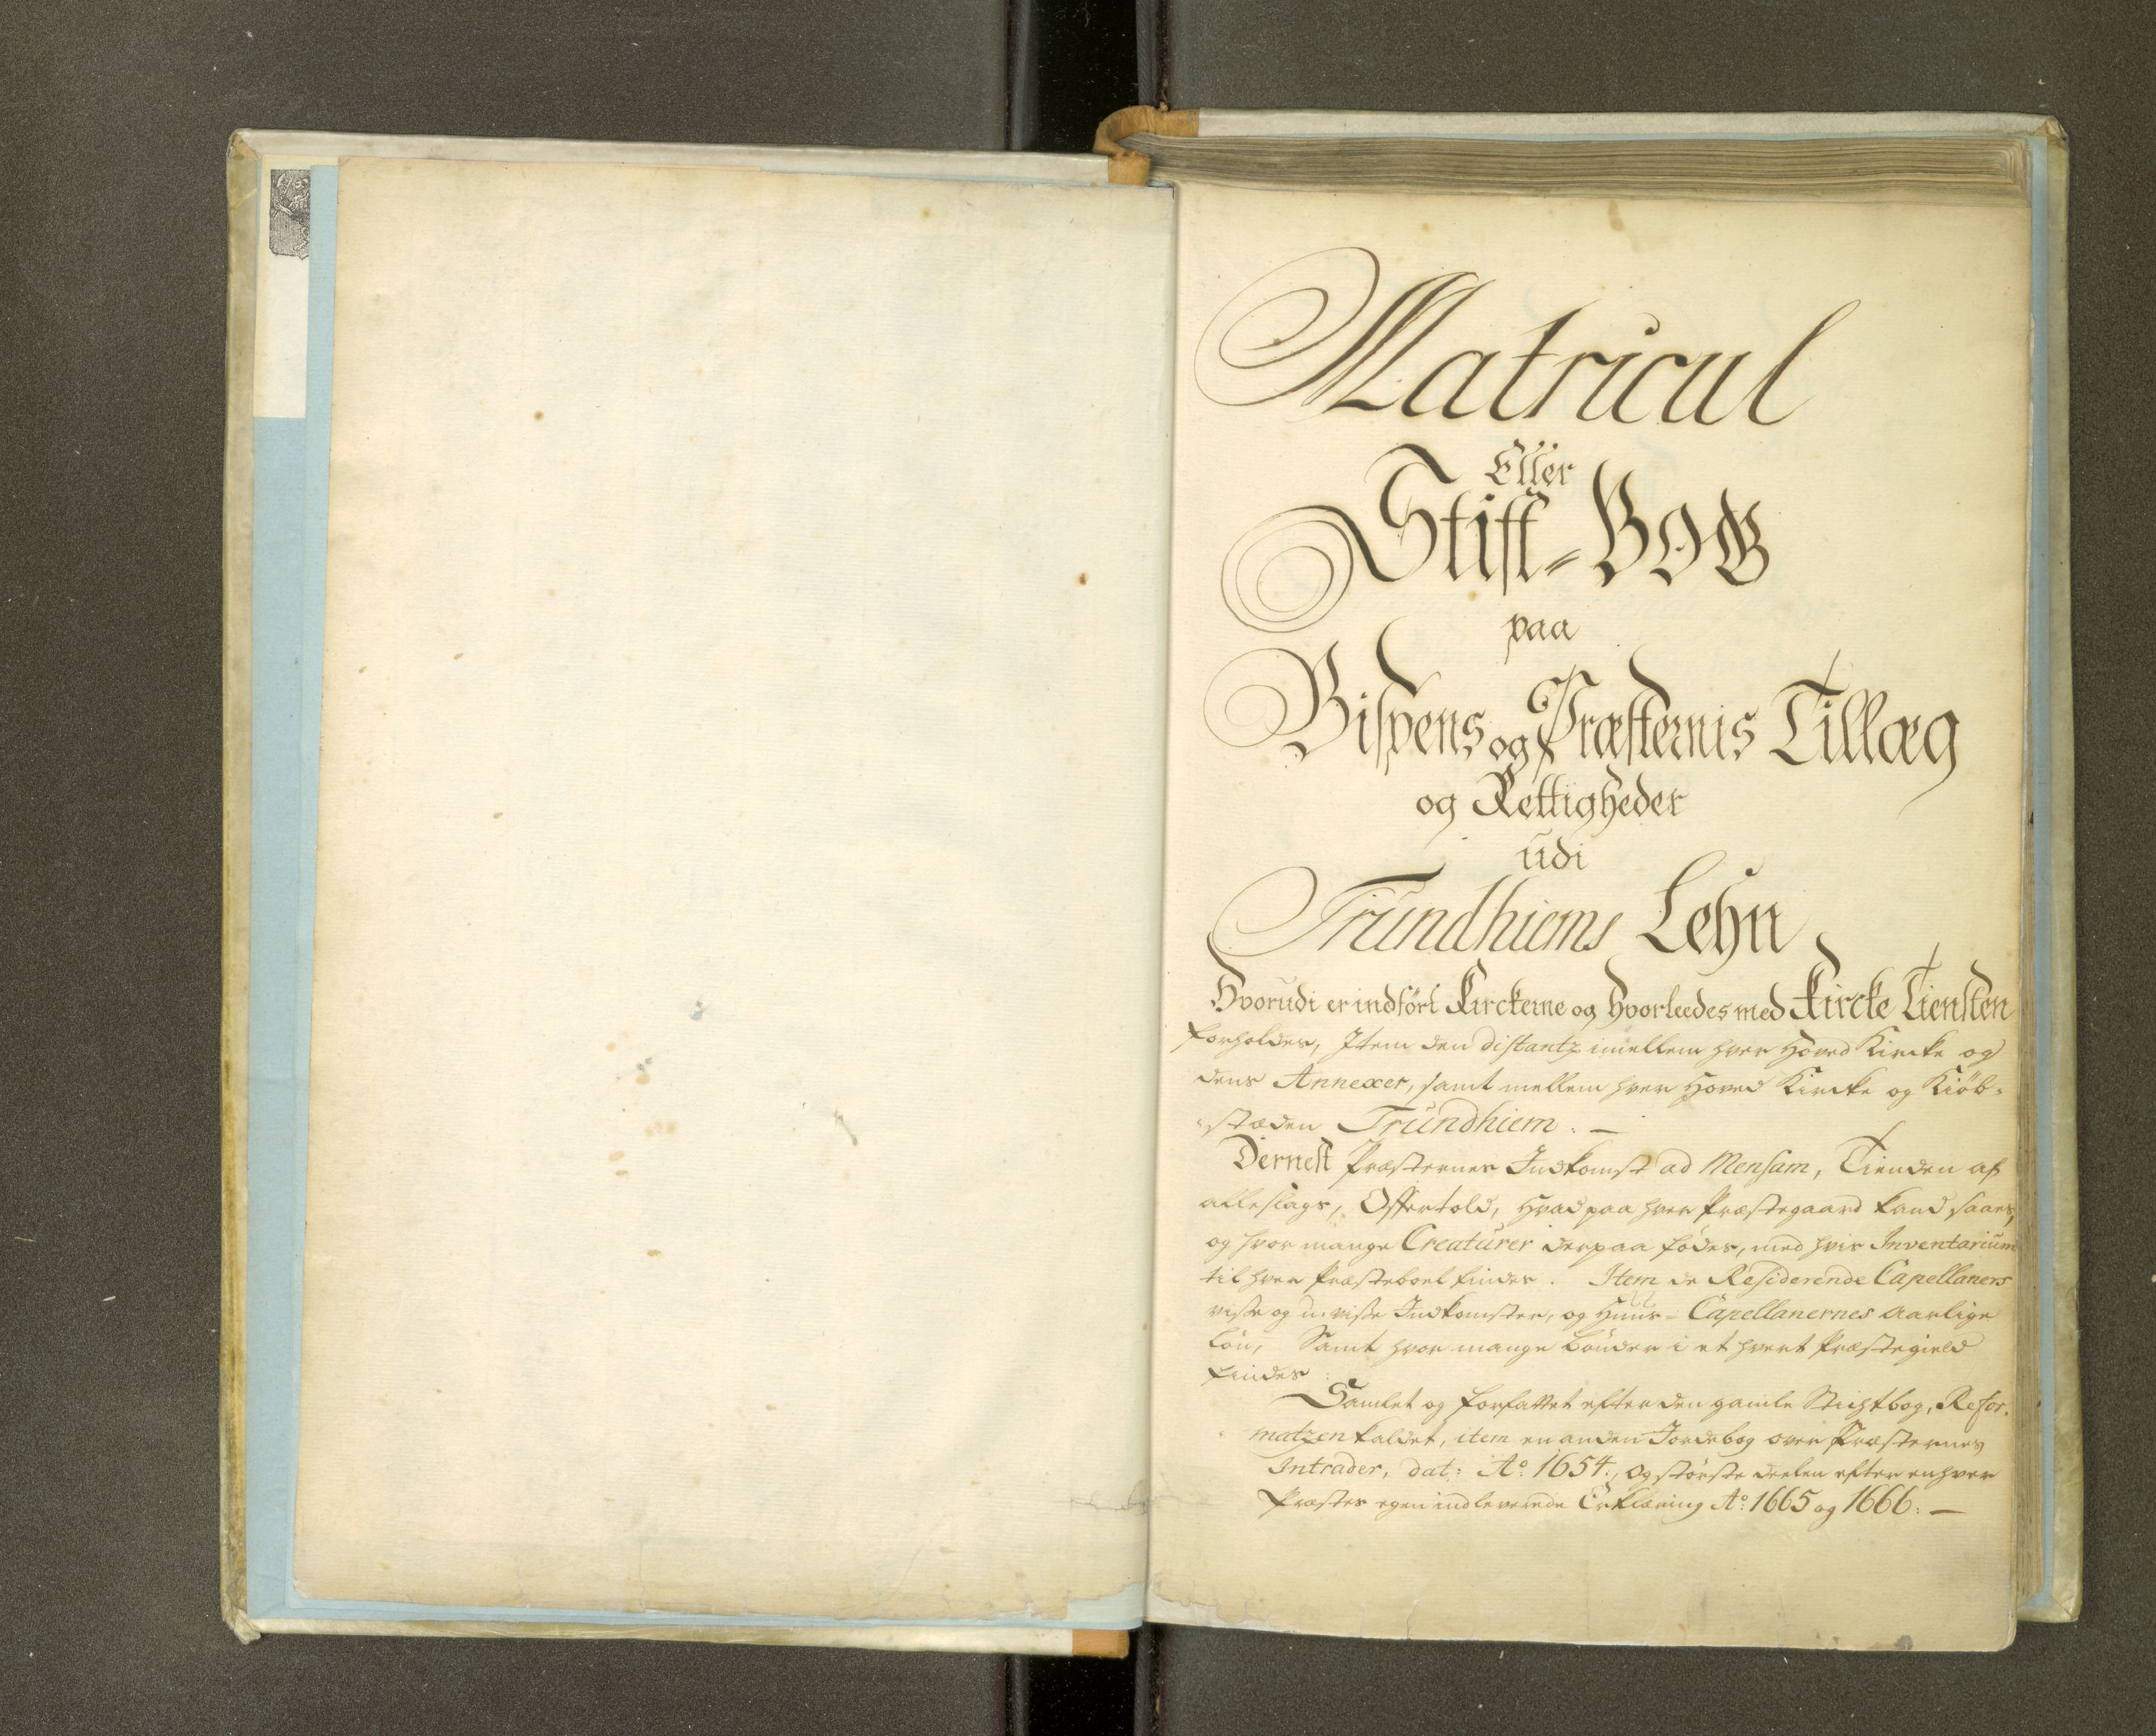 Matricul
Eller
Stift-Bog
paa
Bispens og Præsternis Tillæg
og Rettigheder
udi
Trundhiems Lehn
Hvorudi er indført Kirckerne og Hvorleedes med Kircke Tiensten
forholdes, Item den distantz imellem hver Hoved Kircke og
dens Annexer, samt mellem hver Hoved Kircke og Kiøb-
stæden Trundhiem. —
Dernest Præsternes Indkomst ad Mensam, Tienden af
alleslags, Offertold, Hvad paa hver Præstegaard kand saaes,
og hvor mange Creaturer derpaa fødes, med hvis Inventarium
til hver Præsteboel findes. Item de Residerende Capellaners
visse og u-visse Indkomster, og Huus-Capellanernes aarlige
Løn, Samt hvor mange Bønder i et hvert Præstegield
findes
Samlet og forfattet efter den gamle Stichtbog, Refor-
matzen kaldet, item en anden Jordebog over Præsternes
Intrader, dat: Aº 1654., og største deelen efter enhver
Præstes egen indleverede Erklæring Aº: 1665 og 1666. —